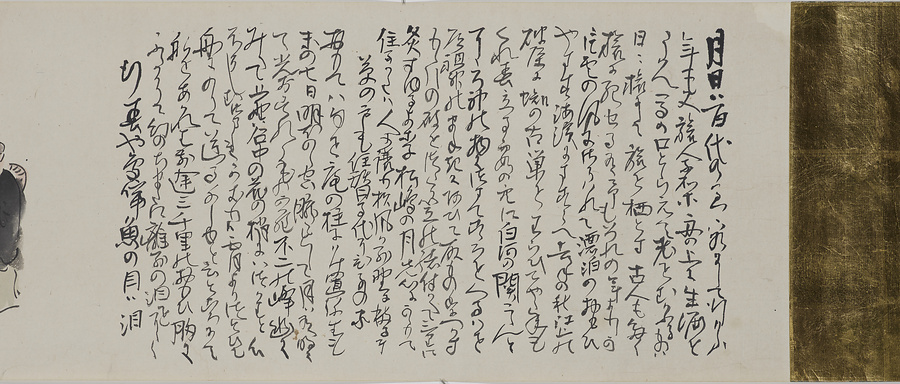 月日は百代の過客にして行かふ
年も又旅人也舟の上に生涯を
うかへ馬の口とらえて老をむかふるものは
日々旅にして旅を栖とす古人も多く
旅に死せるあり予もいつれの年よりか
片雲の風にさそはれて漂泊の思ひ
やます海浜にさすらへ去年の秋江上の
破屋に蜘の古巣をはらひてやゝ年も
くれ春立る霞の空に白河の関こえんと
そゝろ神の物につきてこゝろをくるはせ
道祖神のまねきにあひて取もの手につかす
もゝ引の破をつゝり笠の緒付かえて三里に
灸すゆるより松嶋の月先心にかゝりて
住る方は人に譲り杉風か別墅に移るに
草の戸も住替る代そひなの家
面八句を庵の柱に懸置弥生も
末の七日明ほのゝ空朧々として月は有明
にて光おさまれる物から不二の峰幽に
みえて上野谷中の花の梢又いつかはと心
ほそしむつましきかきりは宵よりつとひて
舟にのりて送る千しゆと云ところにて
船をあかれは前途三千里のおもひ胸に
ふさかりて幻のちまたに離別の泪をそゝく
行春や鳥啼魚の目は泪